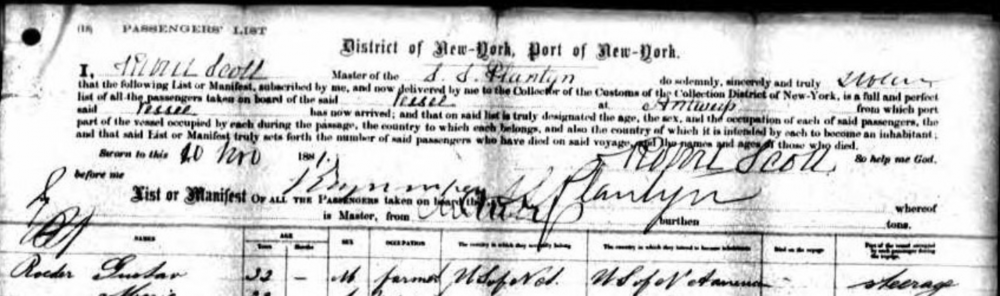 (18) PASSENGERS' LIST
District of New-York, Port of New-York.
I, Robert Scott Master of the S. S. Plantyn do solemnly, sincerely and truly
that the following List or Manifest, subscribed by me, and now delivered by me to the Collector of the Customs of the Collection District of New-York, is a full and perfect
list of all the passengers taken on board of the said Vessel at Antwerp from which port
said Vessel has now arrived; and that on said list is truly designated the age, the sex, and the occupation of each of said passengers, the
part of the vessel occupied by each during the passage, the country to which each belongs, and also the country of which it is intended by each to become an inhabitant;
and that said List or Manifest truly sets forth the number of said passengers who have died on said voyage, and the names and ages of those who died.
Sworn to this 10 Nov 1881. Robert Scott So help me God.
before me
List or Manifest OF ALL THE PASSENGERS taken on board the S Plantyn whereof
is Master, from burthen tons.
NAMES AGE Years Months SEX OCCUPATION The country to which they severally belong The country to which they intend to become inhabitants Died on the voyage Part of the vessel occupied by each passenger during the voyage
Roeder Gustav 22 — M farmer US of N US of N America steerage